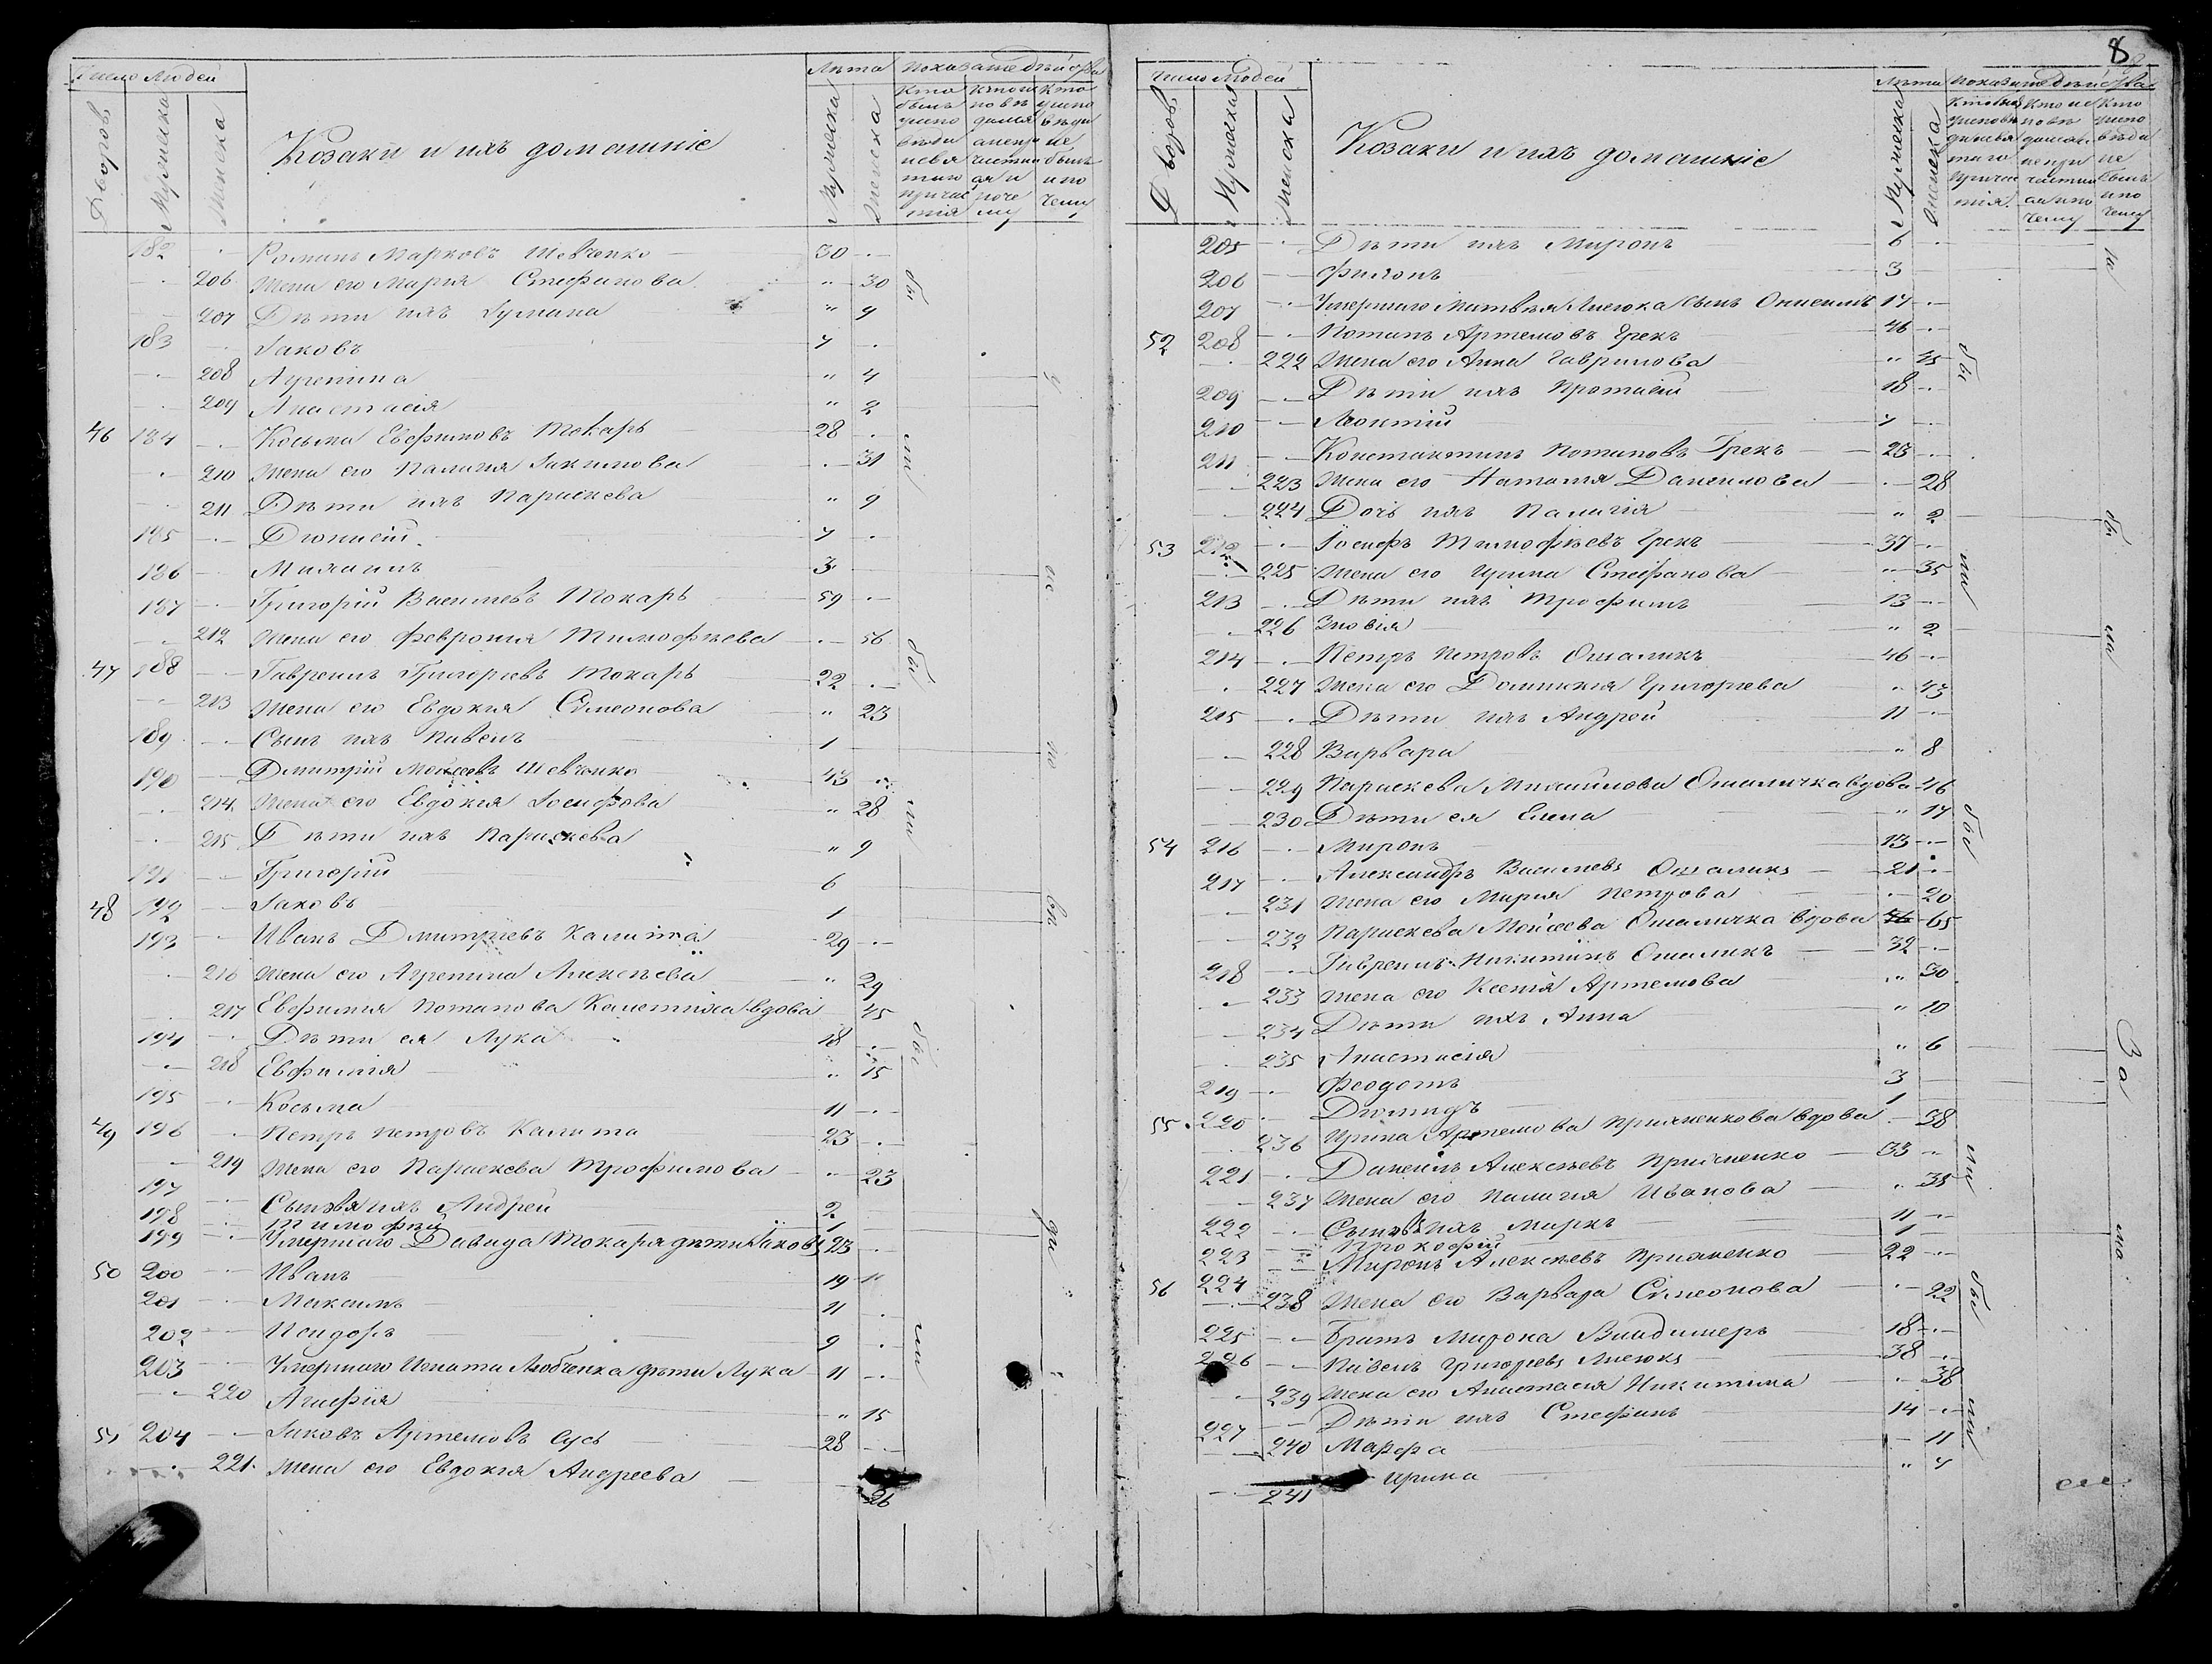 Число людей
Дворовъ
Мужеска
Женска
Козаки и ихъ домашніе
Лѣта
Мужеска
Женска
Показаніе дѣйства
182 Романъ Марковъ Шевченко 30
206 Жена его Марія Стефанова 30
207 Дѣти ихъ 9
183 Іаковъ 7
208 Агрепина 4
209 Анастасія 2
46 184 Косьма Евфимовъ Токарь 28
210 Жена его Палагія Іакимова 31
211 Дѣти ихъ Параскева 9
185 Діонисій 7
186 Михаилъ 3
187 Григорій Васильевъ Токарь 59
212 Жена его Феврония Тимофѣева 56
47 188 Гавреилъ Григоріевъ Токарь 22
213 Жена его Евдокия Симеонова 23
189 Сынъ ихъ Павелъ 1
190 Дмитрій Моѵсеевъ Шевченко 43
214 Жена его Евдокія Іосифова 28
215 Дѣти ихъ Параскева 9
191 Григорій 6
48 192 Іаковъ 1
193 Иванъ Дмитріевъ Калита 29
216 Жена его Агрепина Алексѣева 29
217 Евфимія Потапова вдова 45
194 Дѣти ея Лука 18
218 Евфимія 15
195 Косьма 11
49 196 Петръ Петровъ Калита 23
219 Жена его Параскева Трофимова 23
197 Сыновья ихъ Андрей 2
198 Тимофѣй 1
199 Умершаго Давида Токаря дѣти Іаковъ 23
50 200 Иванъ 19
201 Максимъ 11
202 Исидоръ 9
203 Умершаго Игната Любченка дѣти Лука 11
220 Агафія 15
51 204 Іаковъ Артемовъ Сусь 28
221 Жена его Евдокія Андреева 26
8
Число людей
Дворовъ
Мужеска
Женска
Козаки и ихъ домашніе
Лѣта
Мужеска
Женска
Показаніе дѣйства
205 Дѣти ихъ Миронъ 6
206 Филонъ 3
207 Умершаго Матвѣя Лисюка сынъ Онисимъ 17
52 208 Потапъ Артемовъ Грекъ 46
222 Жена его Анна Гаврилова 35
209 Дѣти ихъ Протасій 18
210 Леонтій 7
211 Константинъ Потаповъ Грекъ 23
223 Жена его Наталія Данилова 28
224 Дочь ихъ Палагія 2
53 212 Іосифъ Тимофѣевъ Грекъ 37
225 Жена его Ирина Стефанова 35
213 Дѣти ихъ Трофимъ 13
226 Зновія 2
214 Петръ Петровъ Ошаликъ 46
227 Жена его Доминикія Григорьева 43
215 Дѣти ихъ Андрей 11
228 Варвара 8
229 Параскева Михайлова Ошаличка вдова 46
230 Дѣти ея Елена 17
54 216 Миронъ 13
217 Александръ Васильевъ Ошаликъ 21
231 Жена его Марія Петрова 20
232 Параскева Моисеева Ошаличка вдова 65
218 Гавреилъ Никитинъ Ошаликъ 32
233 Жена его Ксенія Артемова 30
234 Дѣти ихъ Анна 10
235 Анастасія 6
219 Феодотъ 3
55 220 Діомидъ 1
236 Ирина Артемова Прихненкова вдова 38
221 Даніилъ Алексѣевъ Прихненко 33
237 Жена его Палагія Иванова 35
222 Сыновья ихъ Маркъ 11
223 Прокофій 1
56 224 Миронъ Алексѣевъ Прихненко 22
238 Жена его Варвара Симеонова 22
225 Братъ Мирона Владимеръ 18
226 Павелъ Григорьевъ Лисюкъ 38
239 Жена его Анастасія Никитина 38
227 Дѣти ихъ Стефанъ 14
240 Марфа 11
241 Ирина 7